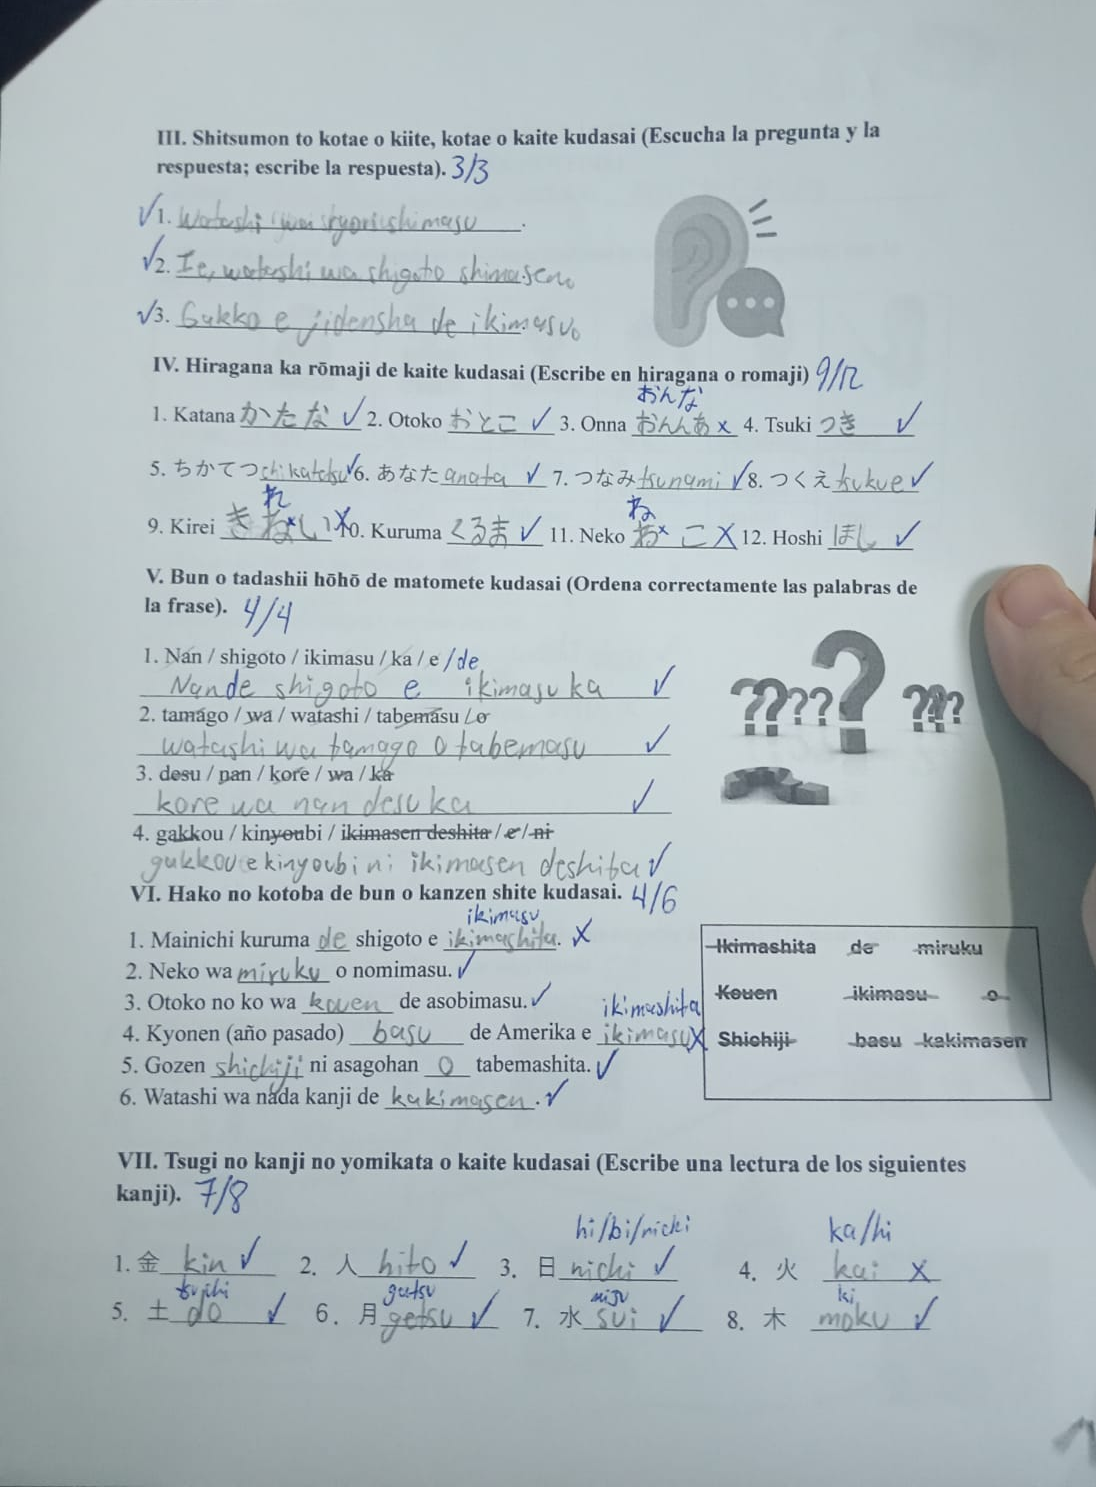 III. Shitsumon to kotae o kiite, kotae o kaite kudasai (Escucha la pregunta y la
respuesta; escribe la respuesta). 3/3
√1. Watashi wa ryori shimasu.
√2. Ie, watashi wa shigoto shimasen。
√3. Gakko e jidensha de ikimasu。
IV. Hiragana ka rōmaji de kaite kudasai (Escribe en hiragana o romaji) 9/12
おんな
1. Katana かたな ✓ 2. Otoko おとこ ✓ 3. Onna おんんあ x 4. Tsuki つき ✓
5. ちかてつ chikatetsu ✓ 6. あなた anata ✓ 7. つなみ tsunami ✓ 8. つくえ tsukue ✓
れ ね
9. Kirei き ねx い X 10. Kuruma くるま ✓ 11. Neko おx こ X 12. Hoshi ほし ✓
V. Bun o tadashii hōhō de matomete kudasai (Ordena correctamente las palabras de
la frase). 4/4
1. Nan / shigoto / ikimasu / ka / e / de
Nande shigoto e ikimasu ka ✓
2. tamago / wa / watashi / tabemasu / o
watashi wa tamago o tabemasu ✓
3. desu / nan / kore / wa / ka
kore wa nan desu ka ✓
4. gakkou / kinyoubi / ikimasen deshita / e / ni
gakkou e kinyoubi ni ikimasen deshita ✓
VI. Hako no kotoba de bun o kanzen shite kudasai. 4/6
ikimasu
1. Mainichi kuruma de shigoto e ikimashita. X
2. Neko wa miruku o nomimasu. ✓
3. Otoko no ko wa kouen de asobimasu. ✓
ikimashita
4. Kyonen (año pasado) basu de Amerika e ikimasu X
5. Gozen shichiji ni asagohan o tabemashita. ✓
6. Watashi wa nada kanji de kakimasen. ✓
Ikimashita de miruku
Kouen ikimasu o
Shichiji basu kakimasen
VII. Tsugi no kanji no yomikata o kaite kudasai (Escribe una lectura de los siguientes
kanji). 7/8
hi/bi/nichi ka/hi
1. 金 kin ✓ 2. 人 hito ✓ 3. 日 nichi ✓ 4. 火 kai X
tsuchi gatsu mizu ki
5. 土 do ✓ 6. 月 getsu ✓ 7. 水 sui ✓ 8. 木 moku ✓